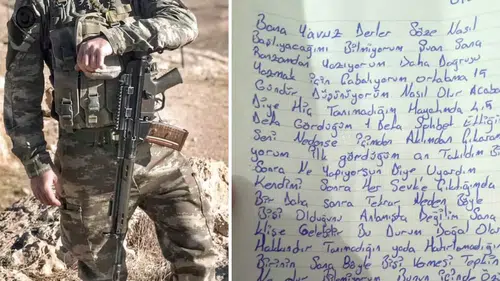 Bana Yavuz Derler Söze Nasıl
Başlıyacağımı Bilmiyorum Şuan Sana
Ranzamdan Yazıyorum Daha Doğrusu
Yazmak İçin Çabalıyorum ortalama 15
Gündür Düşünüyorum Nasıl Olur Acaba
Diye Hiç Tanımadığım Hayatımda 4,5
Defa Gördüğüm 1 Defa Sohbet Ettiğim
Seni Nedense İçimden Aklımdan Çıkaramı
yorum İlk gördüğüm an Takıldım
Sonra Ne Yapıyorsun Diye Uyardım
Kendimi Sonra Her Sevke Çıktığımda
Bir Daha sonra Tekrar Neden Böyle
Bişi Olduğunu Anlamışta Değilim Sana
klişe Gelebilir Bu Durum Doğal Olarak
Hakkındır Tanımadığın yada Hatırlamadığın
Birinin Sana Böyle Bişi Vermesi Tepkin
Ne olur Bilmiyorum Bunun İçinde